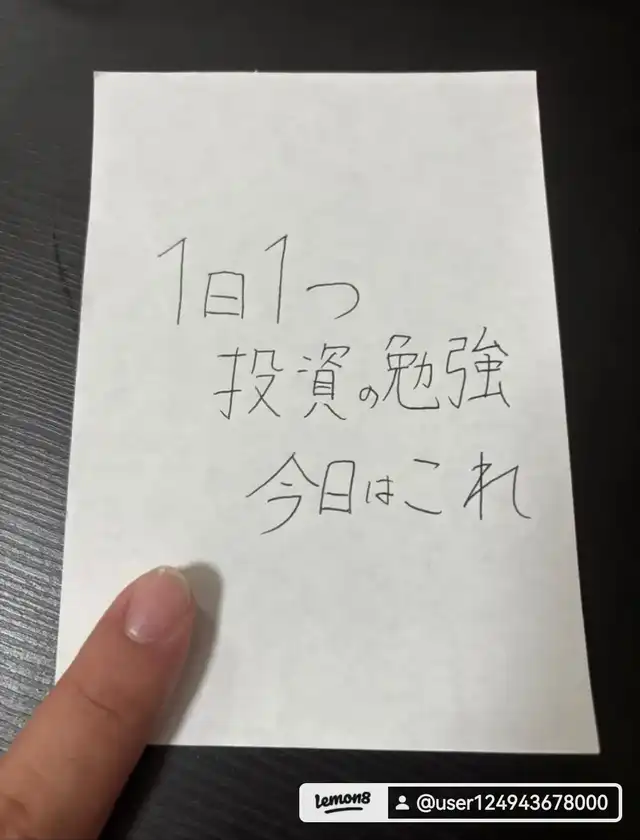 1日1つ
投資の勉強
今日はこれ
lemon8 @user124943678000